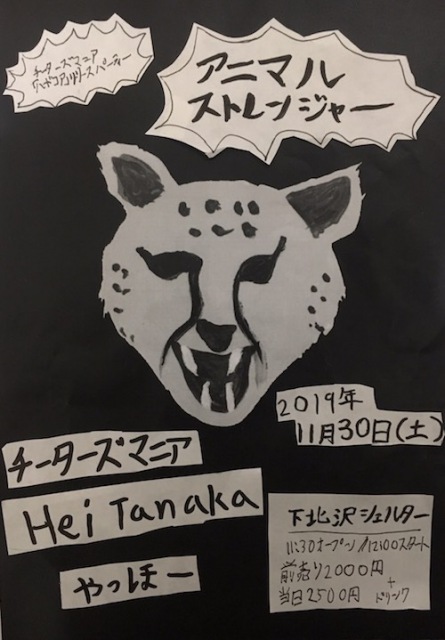 チーターズマニア
リリースパーティー
アニマル
ストレンジャー
2019年
11月30日(土)
チーターズマニア
Hei Tanaka
やっほー
下北沢シェルター
11:30オープン//12:00スタート
前売り2000円
+
当日2500円 ドリンク